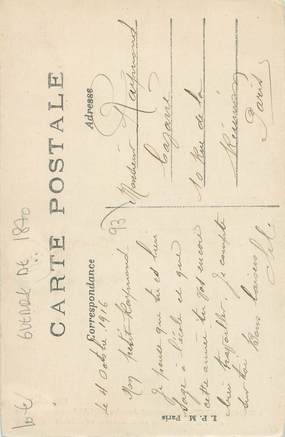 GUERRE DE 1870
CARTE POSTALE
Correspondance
Adresse
le 4 Octobre 1916
Mon petit Raymond
Je pense que tu es bien
sage à l'école et que
cette année tu vas encore
bien travailler. Je compte
sur toi Bons baisers
Monsieur Raymond
10 Rue de la
Réunion
Paris
93
L. P. M. Paris